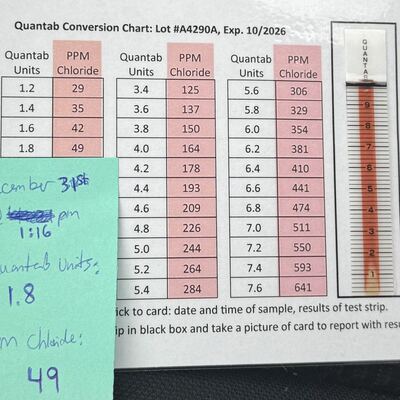 Quantab Conversion Chart: Lot #A4290A, Exp. 10/2026
Quantab Units PPM Chloride
1.2 29
1.4 35
1.6 42
1.8 49
Quantab Units PPM Chloride
3.4 125
3.6 137
3.8 150
4.0 164
4.2 178
4.4 193
4.6 209
4.8 226
5.0 244
5.2 264
5.4 284
Quantab Units PPM Chloride
5.6 306
5.8 329
6.0 354
6.2 381
6.4 410
6.6 441
6.8 474
7.0 511
7.2 550
7.4 593
7.6 641
QUANTAB
9
8
7
6
5
4
3
2
1
cember 31st
pm
1:16
uantab Units:
1.8
m Chloride:
49
ick to card: date and time of sample, results of test strip.
ip in black box and take a picture of card to report with resu